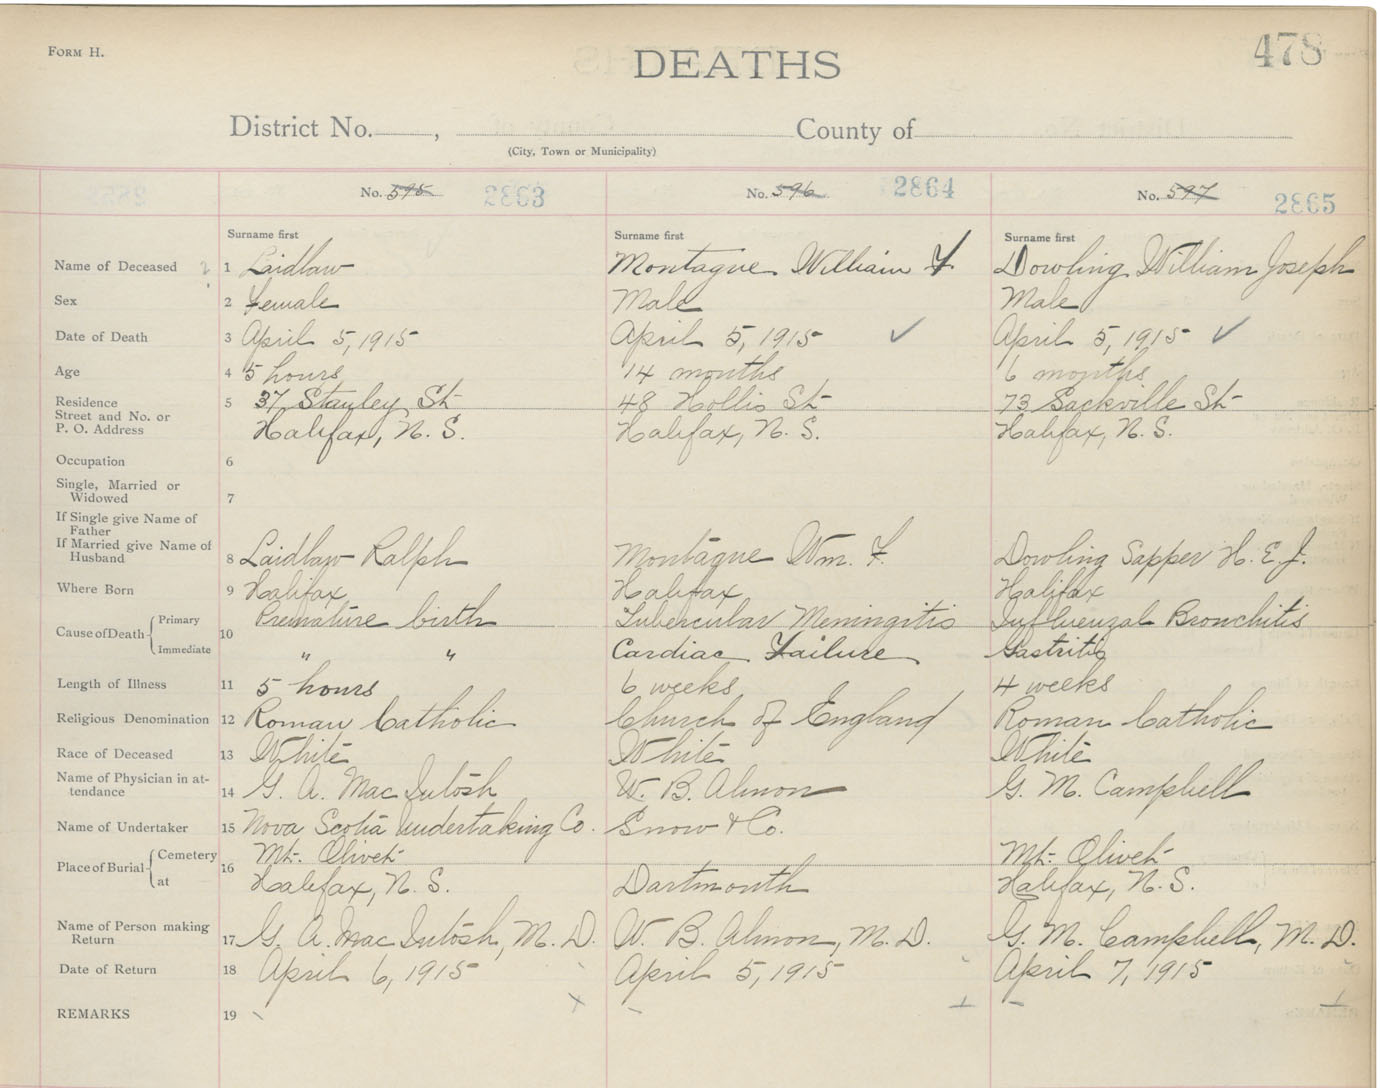 FORM H.
DEATHS
478
District No. , County of
(City, Town or Municipality)
No. 595 2863 No. 596 2864 No. 597 2865
Surname first Surname first Surname first
Name of Deceased 1 Laidlaw Montague William F. Dowling William Joseph
Sex 2 Female Male Male
Date of Death 3 April 5, 1915 April 5, 1915 ✓ April 5, 1915 ✓
Age 4 5 hours 14 months 6 months
Residence 5 37 Stanley St 48 Hollis St 73 Sackville St
Street and No. or
P. O. Address Halifax, N. S. Halifax, N. S. Halifax, N. S.
Occupation 6
Single, Married or
Widowed 7
If Single give Name of
Father
If Married give Name of
Husband 8 Laidlaw Ralph Montague Wm. F. Dowling Sapper H. E. J.
Where Born 9 Halifax Halifax Halifax
Cause of Death 10 Primary Premature birth Tubercular Meningitis Influenzal Bronchitis
Immediate " " Cardiac Failure Gastritis
Length of Illness 11 5 hours 6 weeks 4 weeks
Religious Denomination 12 Roman Catholic Church of England Roman Catholic
Race of Deceased 13 White White White
Name of Physician in at-
tendance 14 G. A. MacIntosh W. B. Almon G. M. Campbell
Name of Undertaker 15 Nova Scotia Undertaking Co. Snow & Co.
Place of Burial 16 Cemetery Mt. Olivet Mt. Olivet
at Halifax, N. S. Dartmouth Halifax, N. S.
Name of Person making
Return 17 G. A. MacIntosh, M. D. W. B. Almon, M. D. G. M. Campbell, M. D.
Date of Return 18 April 6, 1915 April 5, 1915 April 7, 1915
REMARKS 19